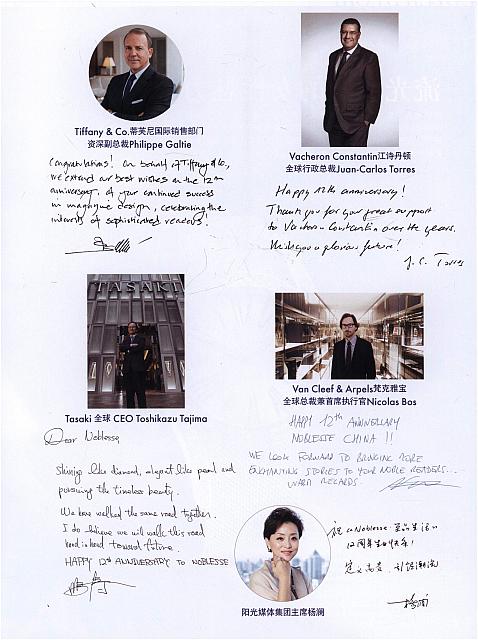 Tiffany & Co.蒂芙尼国际销售部门
资深副总裁Philippe Galtie
Congratulations! On behalf of Tiffany & Co.,
we extend our best wishes on the 12th
anniversary, of your continued success
in magazine design, celebrating the
interests of sophisticated readers!
Vacheron Constantin江诗丹顿
全球行政总裁Juan-Carlos Torres
Happy 12th anniversary!
Thank you for your great support
to Vacheron Constantin over the years.
Wish you a glorious future!
J. C. Torres
TASAKI
Tasaki 全球 CEO Toshikazu Tajima
Dear Noblesse,
Shining like diamond, elegant like pearl and
pursuing the timeless beauty.
We have walked the same road together.
I do believe we will walk this road
hand in hand toward future.
HAPPY 12th ANNIVERSARY TO NOBLESSE
Van Cleef & Arpels梵克雅宝
全球总裁兼首席执行官Nicolas Bos
HAPPY 12th ANNIVERSARY
NOBLESSE CHINA !!
WE LOOK FORWARD TO BRINGING MORE
ENCHANTING STORIES TO YOUR NOBLE READERS...
WARM REGARDS.
阳光媒体集团主席杨澜
祝《Noblesse 至品生活》
12周年生日快乐！
定义高贵，引领潮流
杨澜